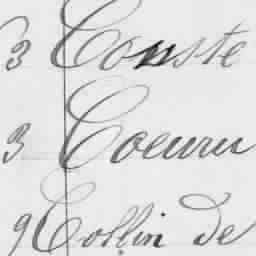 3 Conste
3 Coeuru
9 Collin de